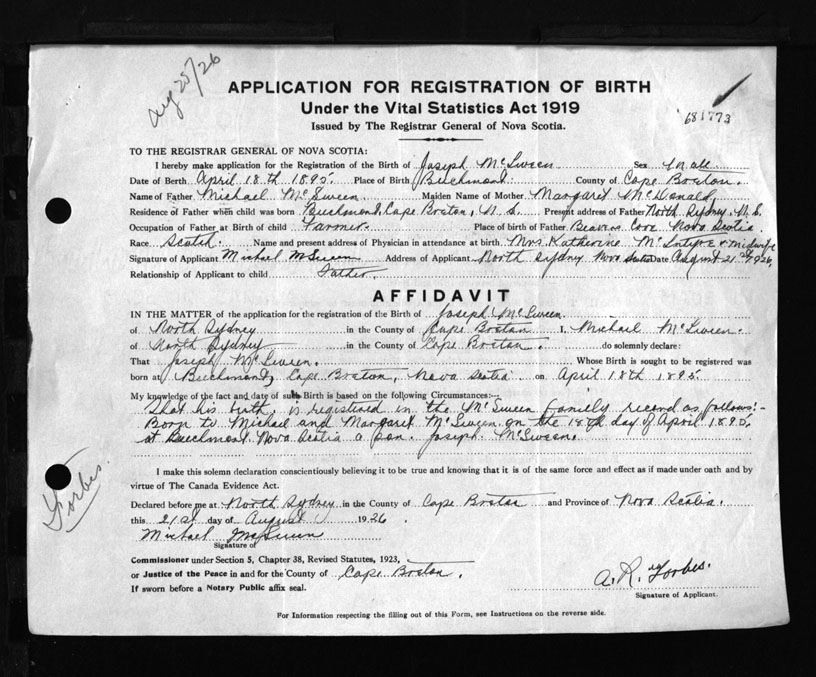 Aug 25/26
APPLICATION FOR REGISTRATION OF BIRTH
Under the Vital Statistics Act 1919
Issued by The Registrar General of Nova Scotia.
681773
TO THE REGISTRAR GENERAL OF NOVA SCOTIA:
I hereby make application for the Registration of the Birth of Joseph McSween Sex Male
Date of Birth April 18th 1895. Place of Birth Beechmont County of Cape Breton.
Name of Father Michael McSween Maiden Name of Mother Margaret McDonald
Residence of Father when child was born Beechmont, Cape Breton, N.S. Present address of Father North Sydney, N.S.
Occupation of Father at Birth of child Farmer. Place of birth of Father Beavers Cove Nova Scotia.
Race Scotch Name and present address of Physician in attendance at birth. Mrs. Katherine McIntyre midwife
Signature of Applicant Michael McSween Address of Applicant North Sydney Nova Scotia Date August 21st 1926
Relationship of Applicant to child Father.
AFFIDAVIT
IN THE MATTER of the application for the registration of the Birth of Joseph McSween
of North Sydney in the County of Cape Breton I, Michael McSween.
of North Sydney in the County of Cape Breton. do solemnly declare:
That Joseph McSween. Whose Birth is sought to be registered was
born at Beechmont, Cape Breton, Nova Scotia on April 18th 1895.
My knowledge of the fact and date of such Birth is based on the following Circumstances:—
That his birth, is registered in the McSween family record as follows:-
Born to Michael and Margaret McSween on the 18th day of April 1895,
at Beechmont Nova Scotia a son. Joseph McSween.
I make this solemn declaration conscientiously believing it to be true and knowing that it is of the same force and effect as if made under oath and by
virtue of The Canada Evidence Act.
Forbes
Declared before me at North Sydney in the County of Cape Breton and Province of Nova Scotia.
this 21st day of August 1926.
Michael McSween
Signature of
Commissioner under Section 5, Chapter 38, Revised Statutes, 1923,
or Justice of the Peace in and for the County of Cape Breton.
If sworn before a Notary Public affix seal.
A. R. Forbes.
Signature of Applicant.
For Information respecting the filling out of this Form, see Instructions on the reverse side.